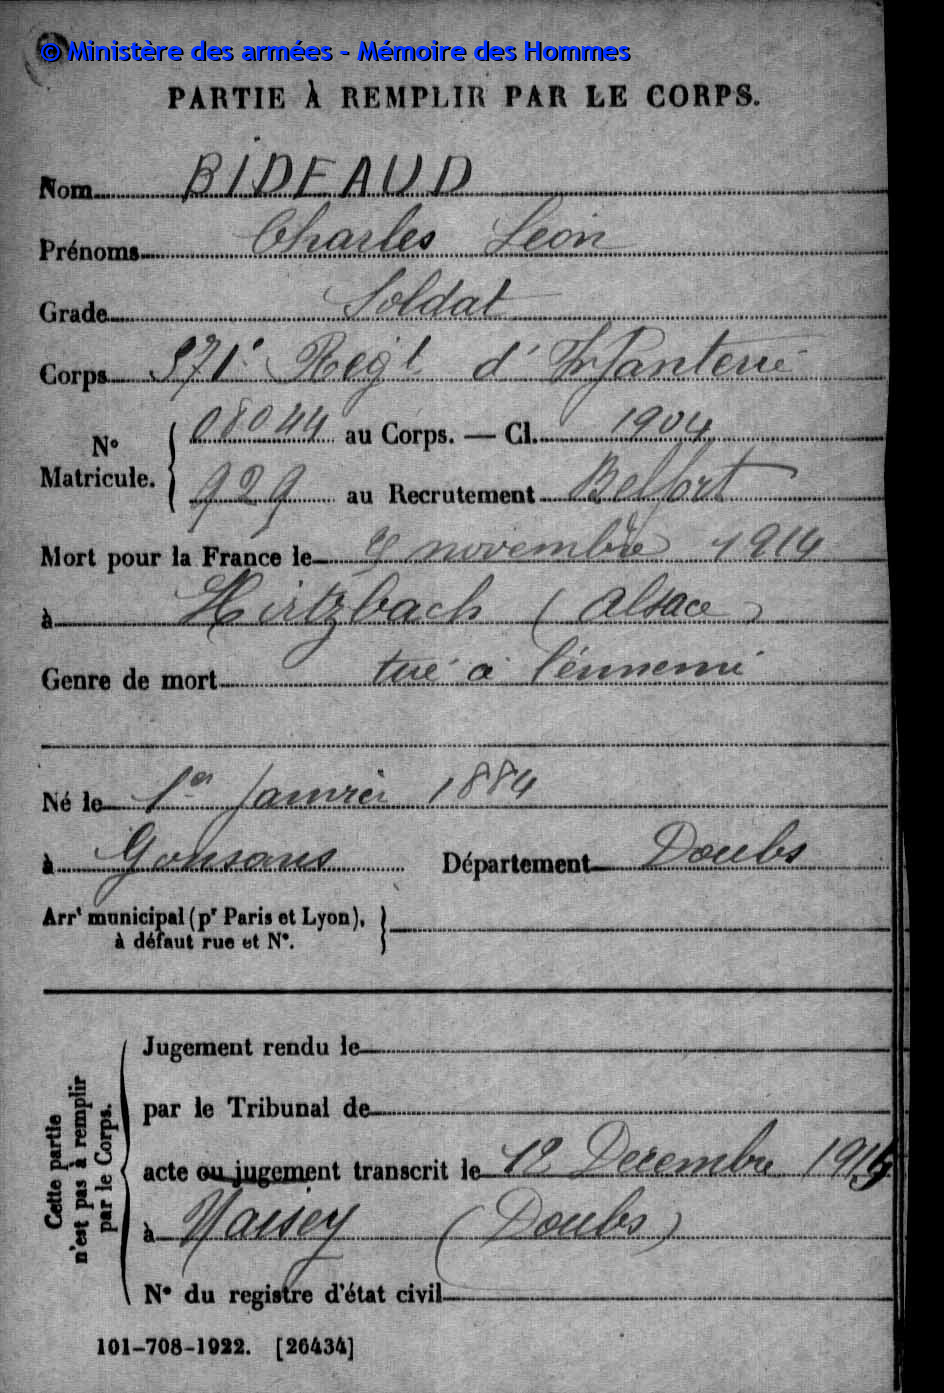 © Ministère des armées - Mémoire des Hommes
PARTIE À REMPLIR PAR LE CORPS.
Nom BIDEAUD
Prénoms Charles Léon
Grade Soldat
Corps 371e Régt d'Infanterie
N° Matricule. 08044 au Corps. — Cl. 1904
929 au Recrutement Belfort
Mort pour la France le novembre 1914
à Hirtzbach (Alsace)
Genre de mort tué à l'énnemi
Né le 1er Janvier 1884
à Gonsans Département Doubs
Arrt municipal (pr Paris et Lyon),
à défaut rue et N°.
Cette partie n'est pas à remplir par le Corps.
Jugement rendu le
par le Tribunal de
acte ou jugement transcrit le 12 Decembre 1915
à Naisey (Doubs)
N° du registre d'état civil
101-708-1922. [26434]